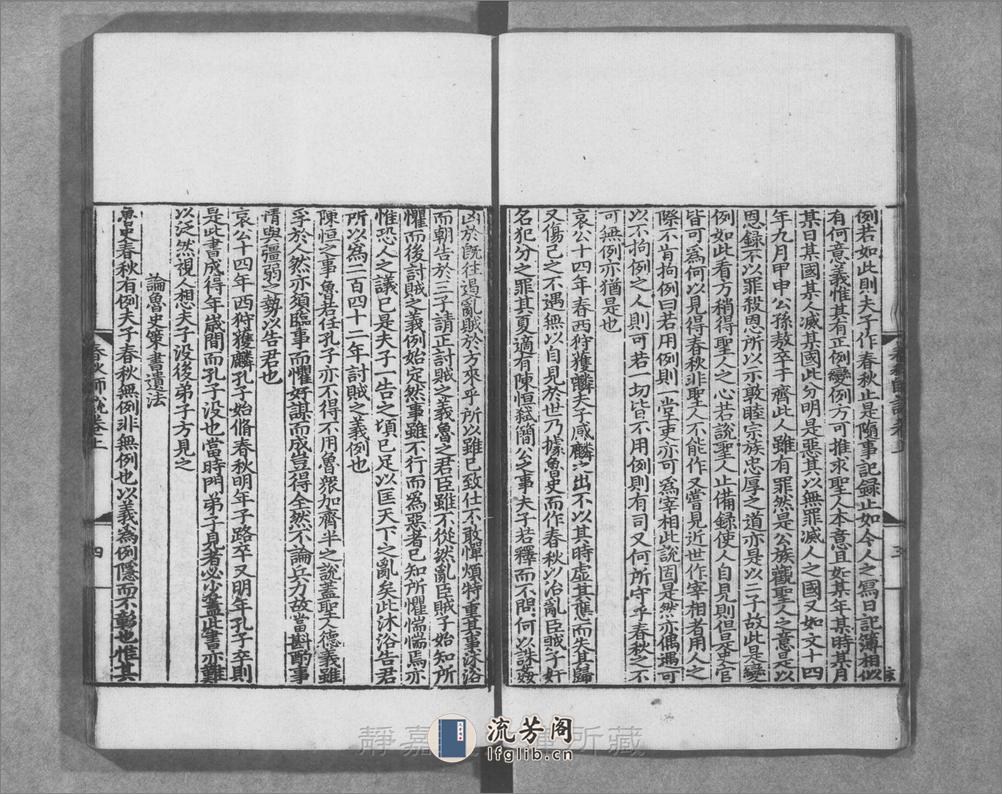 例若如此則夫子作春秋止是隨事記録止如今人之寫日記簿相似
有何意義惟其有正例變例方可推求聖人本意且如某年某時某月
某日某國某人滅某國此分明是惡其以無罪滅人之國又如文十四
年九月甲申公孫敖卒于齊此人雖有罪然是公族觀聖人之意是以
恩録不以罪殺恩所以示敦睦宗族忠厚之道亦是以二子故此是變
例如此看方稍得聖人之心若說聖人止備録使人自見則但是史官
皆可為何以見得春秋非聖人不能作又嘗見近世作宰相者用人之
際不肯拘例曰若用例則一堂吏亦可為宰相此說固是然亦偶遇可
以不拘例之人則可若一切皆不用例則有司又何所守乎春秋之不
可無例亦猶是也
哀公十四年春西狩獲麟夫子感麟之出不以其時虛其應而失其歸
又傷已之不遇無以自見於世乃據魯史而作春秋以治亂臣賊子奸
名犯分之罪其夏適有陳恒弒簡公之事夫子若釋而不問何以誅姦
凶於既往遏亂賊於方來乎所以雖已致仕不敢憚煩特重其事沐浴
而朝告於三子請正討賊之義魯之君臣雖不從然亂臣賊子始知所
懼而後討賊之義例始定然事雖不行而為惡者已知所懼惴惴焉亦
惟恐人之議已是夫子一告之頃已足以匡天下之亂矣此沐浴告君
所以為二百四十二年討賊之義例也
陳恒之事魯若任孔子亦不得不用魯衆加齊半之說蓋聖人德義雖
孚於人然亦須臨事而懼好謀而成豈得全然不論兵力故當斟酌事
情與彊弱之勢以告君也
哀公十四年西狩獲麟孔子始脩春秋明年子路卒又明年孔子卒則
是此書成得年歲間而孔子沒也當時門弟子見者必少蓋此書亦難
以泛然視人想夫子沒後弟子方見之
論魯史策書遺法
魯史春秋有例夫子春秋無例非無例也以義為例隱而不彰也惟其
春秋師說卷上
四
流芳阁
lfglib.cn